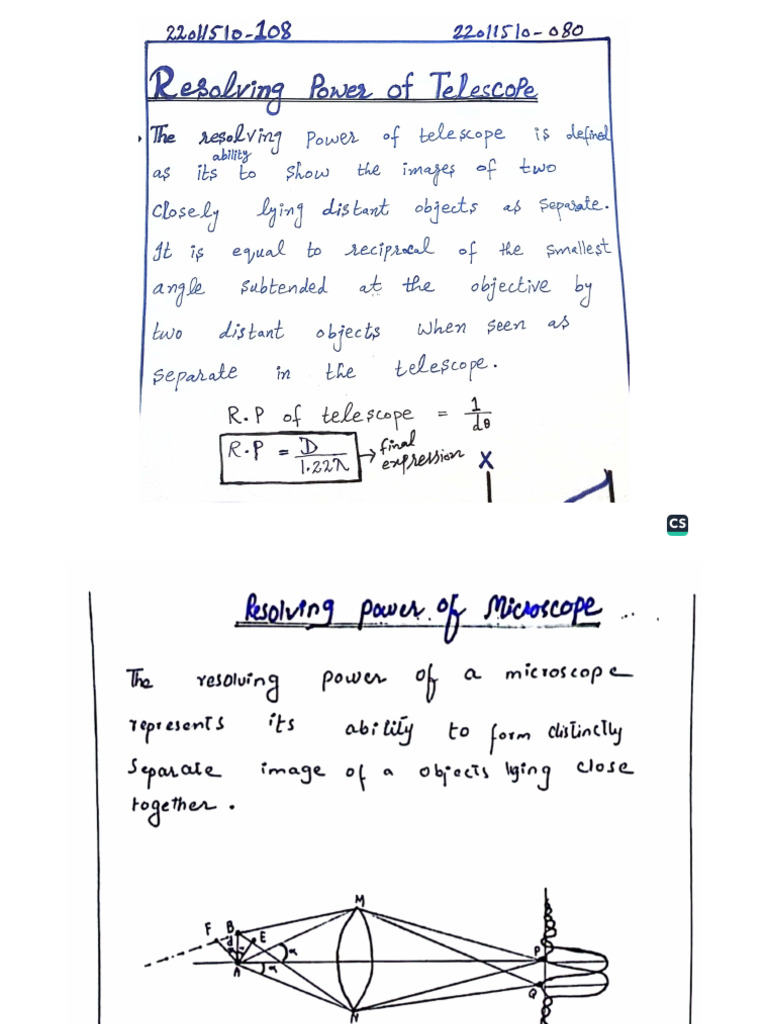 22011510-108 22011510-080
Resolving Power of Telescope
The resolving Power of telescope is defined
ability
as its to show the images of two
closely lying distant objects as separate.
It is equal to reciprocal of the smallest
angle subtended at the objective by
two distant objects when seen as
separate in the telescope.
R.P of telescope = 1/dθ
R.P = D/1.22λ → final expression
X
CS
Resolving power of Microscope
The resolving power of a microscope
represents its ability to form distinctly
separate image of a objects lying close
together.
M
F B E
d α P
A α
Q
N